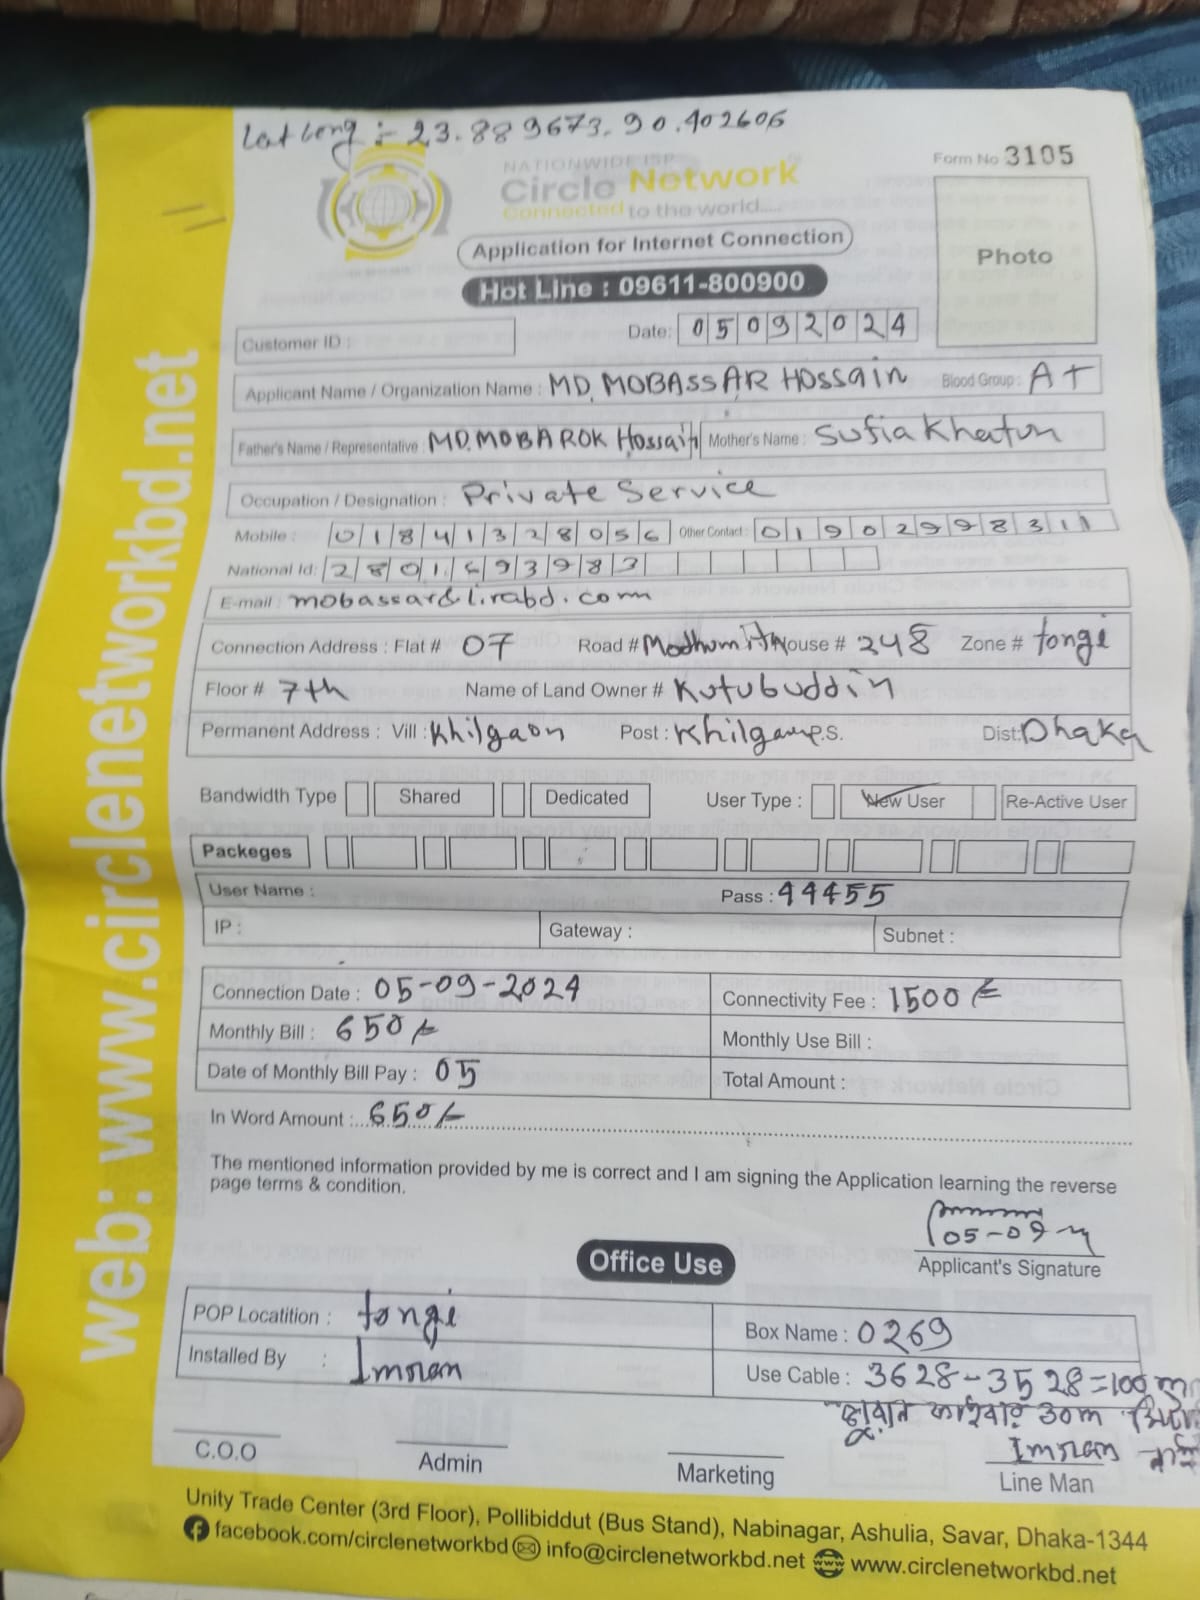 Lat Long :- 23.889673, 90.402606
NATIONWIDE ISP
Circle Network
Connected to the world.....
Form No 3105
Application for Internet Connection
Photo
Hot Line : 09611-800900
Customer ID :
Date: 05092024
Applicant Name / Organization Name : MD. MOBASSAR HOSSAIN Blood Group : A+
Father's Name / Representative : MD. MOBAROK Hossain Mother's Name : Sufia Khatun
Occupation / Designation : Private Service
Mobile : 01841328056 Other Contact : 01902998311
National Id: 2801693983
E-mail : mobassar@lirabd.com
Connection Address : Flat # 07 Road # Modhumita House # 248 Zone # tongi
Floor # 7th Name of Land Owner # Kutubuddin
Permanent Address : Vill : Khilgaon Post : Khilgaon P.S. Dist: Dhaka
Bandwidth Type Shared Dedicated User Type : New User Re-Active User
Packeges
User Name : Pass : 44455
IP : Gateway : Subnet :
Connection Date : 05-09-2024 Connectivity Fee : 1500/=
Monthly Bill : 650/= Monthly Use Bill :
Date of Monthly Bill Pay : 05 Total Amount :
In Word Amount :... 650/=
The mentioned information provided by me is correct and I am signing the Application learning the reverse
page terms & condition.
05-09-24
Applicant's Signature
Office Use
POP Locatition : tongi Box Name : 0269
Installed By : Imran Use Cable : 3628-3528=100 m
ফাইবার 30m
Imran
C.O.O Admin Marketing Line Man
Unity Trade Center (3rd Floor), Pollibiddut (Bus Stand), Nabinagar, Ashulia, Savar, Dhaka-1344
facebook.com/circlenetworkbd info@circlenetworkbd.net www.circlenetworkbd.net
web: www.circlenetworkbd.net